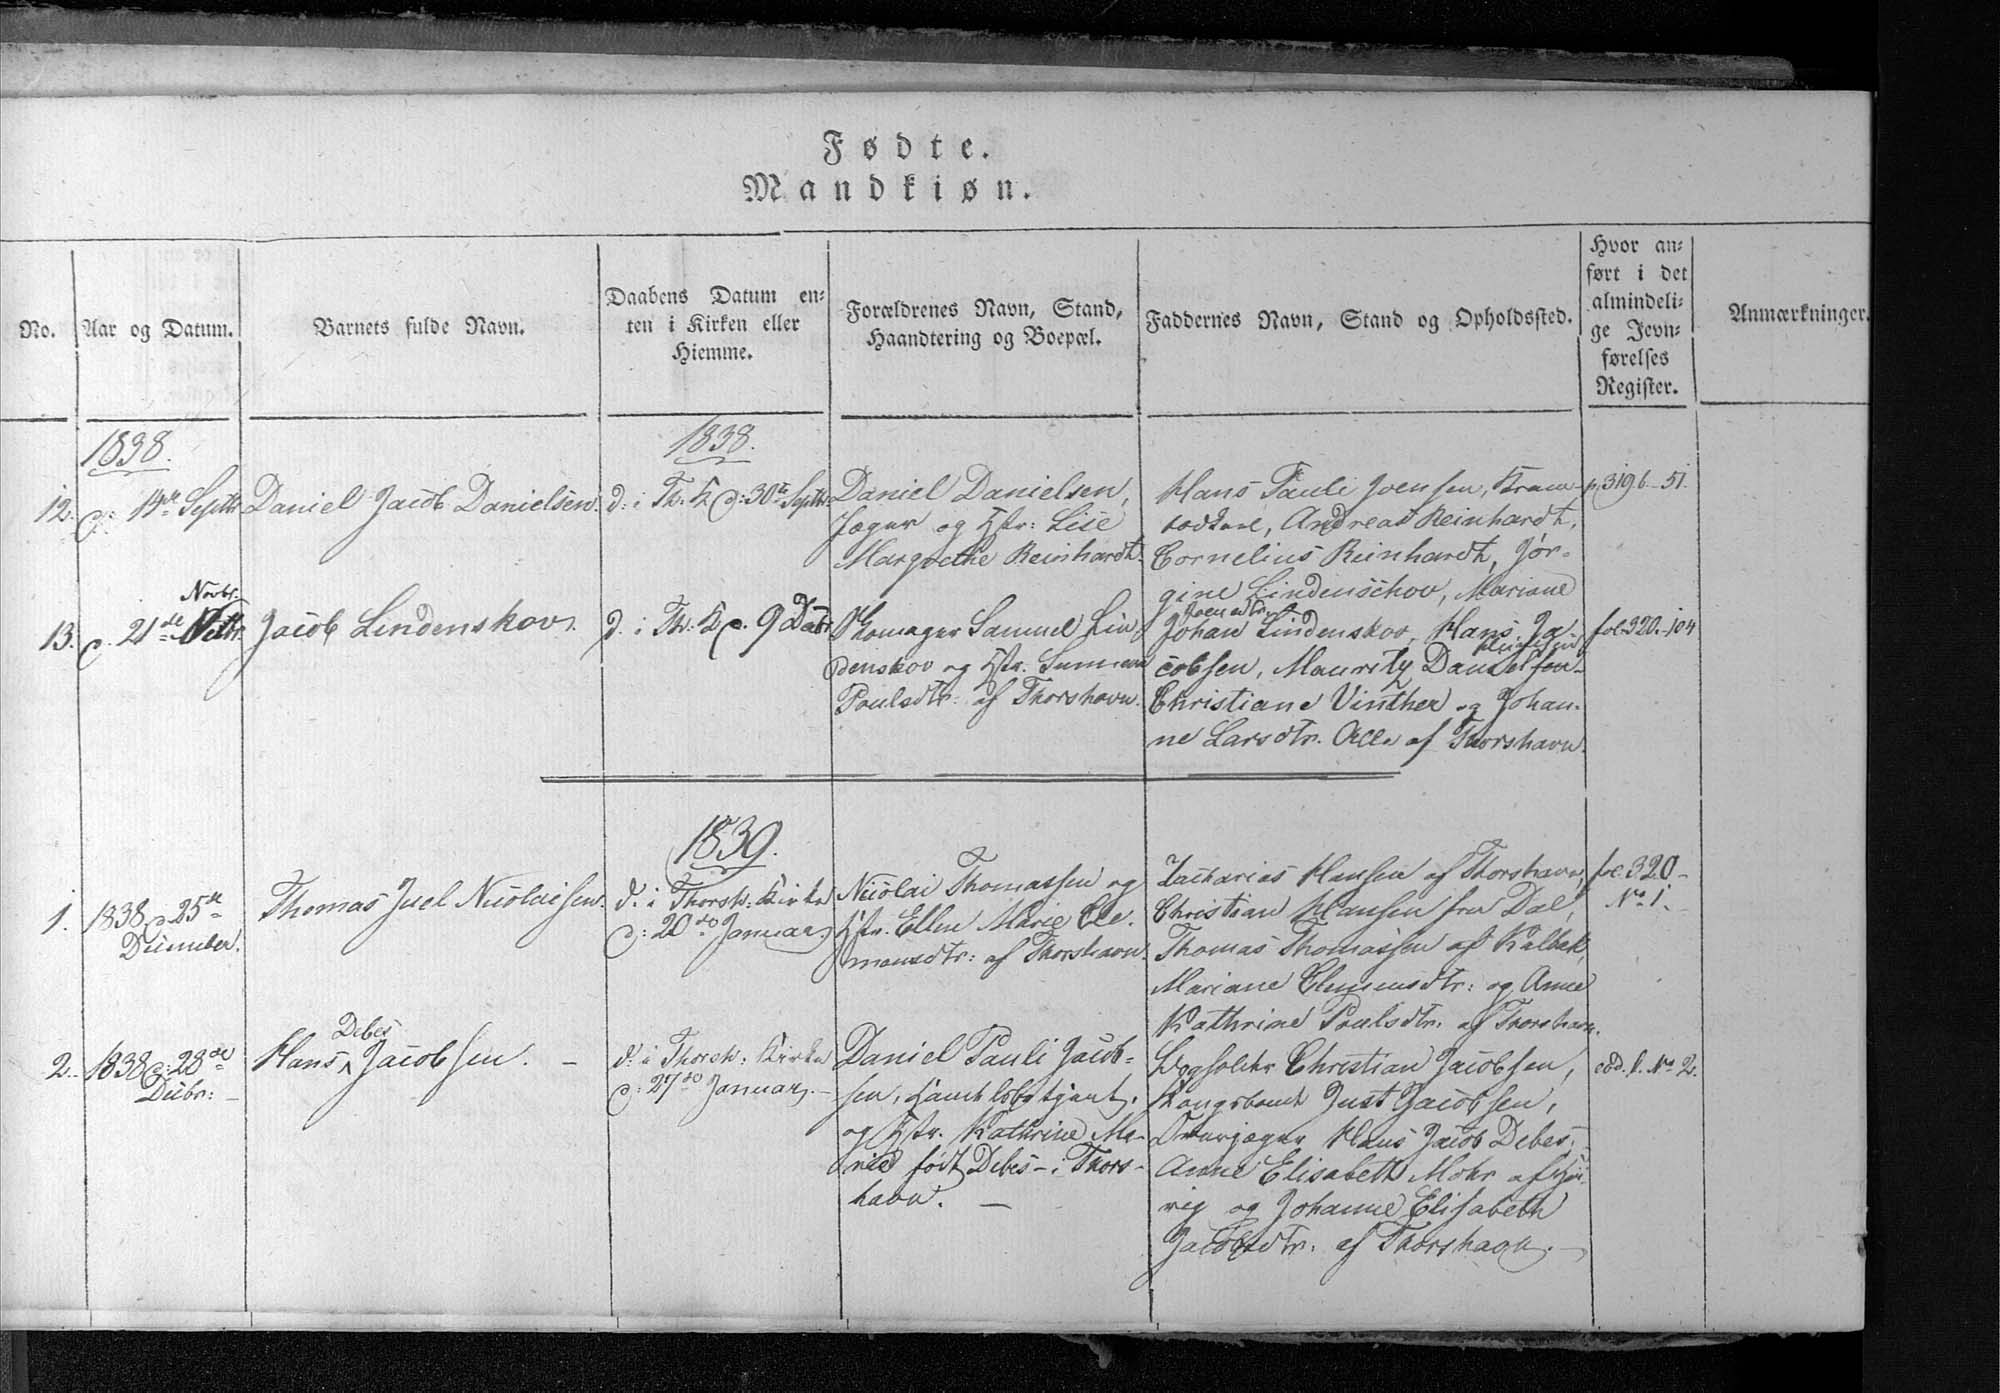 Fødte.
Mandkiøn.
No.
Aar og Datum.
Barnets fulde Navn.
Daabens Datum en-
ten i Kirken eller
Hiemme.
Forældrenes Navn, Stand,
Haandtering og Boepæl.
Faddernes Navn, Stand og Opholdssted.
Hvor an-
ført i det
almindeli-
ge Jevn-
førelses
Register.
Anmærkninger.
1838.
12.
d: 14de Septbr
Daniel Jacob Danielsen.
1838.
d: i Th: K d: 30te Septbr:
Daniel Danielsen,
Jæger og Hstr: Lise
Margrethe Reinhardt.
Hans Pauli Joensen,
Andreas Reinhardt,
Cornelius Reinhardt, Jør-
gine Lindenschov, Mariane
Joensdtr.
p. 319 b - 51.
13.
d. 21de Novbr.
Jacob Lindenskov.
d. i Th: K d. 9 Decbr
Samuel Lin-
denskov og Hstr. Sunneva
Poulsdtr: af Thorshavn.
Johan Lindenskov, Hans Ja-
cobsen, Mauritz Danielsen
Christiane Vinther og Johan-
ne Larsdtr. Alle af Thorshavn.
fol. 320. - 104
1839.
1.
1838 d. 25de
December.
Thomas Juel Nicolaisen.
d: i Thorsh: Kirke
d: 20de Januar
Nicolai Thomassen og
Hstr. Ellen Marie Cle-
mensdtr: af Thorshavn.
Zacharias Hansen af Thorshavn,
Christian Hansen fra Dal,
Thomas Thomassen af Kalbak,
Mariane Clemensdtr: og Anne
Kathrine Poulsdtr. af Thorshavn.
fol. 320 -
No 1.
2.
1838 d: 28de
Decbr: -
Hans Debes Jacobsen. -
d: i Thorsh: Kirke
d: 27de Januar. -
Daniel Pauli Jacob-
sen,
og Hstr. Kathrine Ma-
rie født Debes - i Thors-
havn. -
Christian Jacobsen,
Kongsbonde Just Jacobsen,
Overjæger Hans Jacob Debes,
Anne Elisabeth Mohr af
vig og Johanne Elisabeth
Jacobsdtr: af Thorshavn. -
eod. l. No 2.